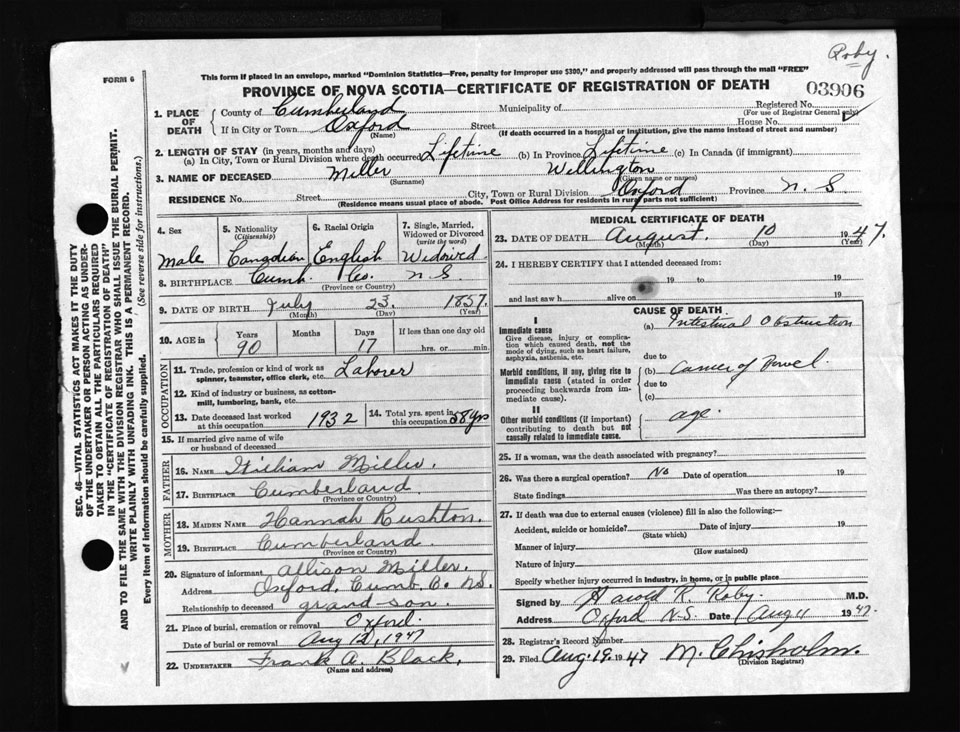 Roby.
FORM 6
This form if placed in an envelope, marked "Dominion Statistics—Free, penalty for improper use $300," and properly addressed will pass through the mail "FREE"
PROVINCE OF NOVA SCOTIA—CERTIFICATE OF REGISTRATION OF DEATH
03906
1. PLACE OF DEATH
County of Cumberland Municipality of Registered No.
(For use of Registrar General only)
If in City or Town Oxford Street House No.
(Name) (If death occurred in a hospital or institution, give the name instead of street and number)
2. LENGTH OF STAY (in years, months and days)
(a) In City, Town or Rural Division where death occurred Lifetime (b) In Province Lifetime (c) In Canada (if immigrant)
3. NAME OF DECEASED Miller Wellington
(Surname) (Given name or names)
RESIDENCE No. Street City, Town or Rural Division Oxford Province N. S.
(Residence means usual place of abode. Post Office Address for residents in rural parts not sufficient)
4. Sex Male
5. Nationality (Citizenship) Canadian
6. Racial Origin English
7. Single, Married, Widowed or Divorced (write the word) Widowed
8. BIRTHPLACE Cumb. Co. N. S
(Province or Country)
9. DATE OF BIRTH July 23. 1857.
(Month) (Day) (Year)
10. AGE in Years 90 Months Days 17 If less than one day old hrs. or min.
OCCUPATION
11. Trade, profession or kind of work as spinner, teamster, office clerk, etc. Laborer
12. Kind of industry or business, as cotton-mill, lumbering, bank, etc.
13. Date deceased last worked at this occupation 1932
14. Total yrs. spent in this occupation 58 yrs
15. If married give name of wife or husband of deceased
FATHER
16. NAME William Miller.
17. BIRTHPLACE Cumberland.
(Province or Country)
MOTHER
18. MAIDEN NAME Hannah Rushton.
19. BIRTHPLACE Cumberland.
(Province or Country)
20. Signature of informant Allison Miller.
Address Oxford, Cumb. Co. N.S.
Relationship to deceased grand-son.
21. Place of burial, cremation or removal Oxford.
Date of burial or removal Aug 12, 1947
22. UNDERTAKER Frank A. Black.
(Name and address)
MEDICAL CERTIFICATE OF DEATH
23. DATE OF DEATH August. 10 1947.
(Month) (Day) (Year)
24. I HEREBY CERTIFY that I attended deceased from:
19 to 19
and last saw h alive on 19
CAUSE OF DEATH
I
Immediate cause
Give disease, injury or complication which caused death, not the mode of dying, such as heart failure, asphyxia, asthenia, etc.
(a) Intestinal Obstruction
due to
Morbid conditions, if any, giving rise to immediate cause (stated in order proceeding backwards from immediate cause).
(b) Cancer of Bowel.
due to
(c)
II
Other morbid conditions (if important) contributing to death but not causally related to immediate cause.
age.
25. If a woman, was the death associated with pregnancy?
26. Was there a surgical operation? No Date of operation 19
State findings Was there an autopsy?
27. If death was due to external causes (violence) fill in also the following:—
Accident, suicide or homicide? Date of injury 19
(State which)
Manner of injury
(How sustained)
Nature of injury
Specify whether injury occurred in industry, in home, or in public place
Signed by Harold R. Roby. M.D.
Address Oxford N.S. Date Aug 11 1947.
28. Registrar's Record Number
29. Filed Aug. 19. 1947 M. Chisholm.
(Division Registrar)
SEC. 46—VITAL STATISTICS ACT MAKES IT THE DUTY
OF THE UNDERTAKER OR PERSON ACTING AS UNDER-
TAKER TO OBTAIN ALL THE PARTICULARS REQUIRED
IN THE "CERTIFICATE OF REGISTRATION OF DEATH"
AND TO FILE THE SAME WITH THE DIVISION REGISTRAR WHO SHALL ISSUE THE BURIAL PERMIT.
WRITE PLAINLY WITH UNFADING INK. THIS IS A PERMANENT RECORD.
Every item of information should be carefully supplied. (See reverse side for instructions.)